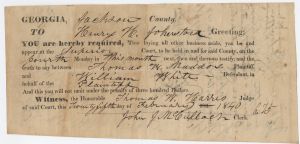 GEORGIA, Jackson County.
To Henry H. Johnstone Greeting:
YOU are hereby required, That laying all other business aside, you be and
appear at the Superior Court, to be held in and for said County, on the
fourth Monday in this month next, then and there to testify, and the
truth to say between Thomas W. Maddox Plaintiff,
and William White Defendant, in
behalf of the Plaintiff
And this you will not omit under the penalty of three hundred Dollars.
Witness, the Honorable Thomas W. Harris Judge
of said Court, this twenty fifth day of February 1840
John J. McCulloch Clerk.